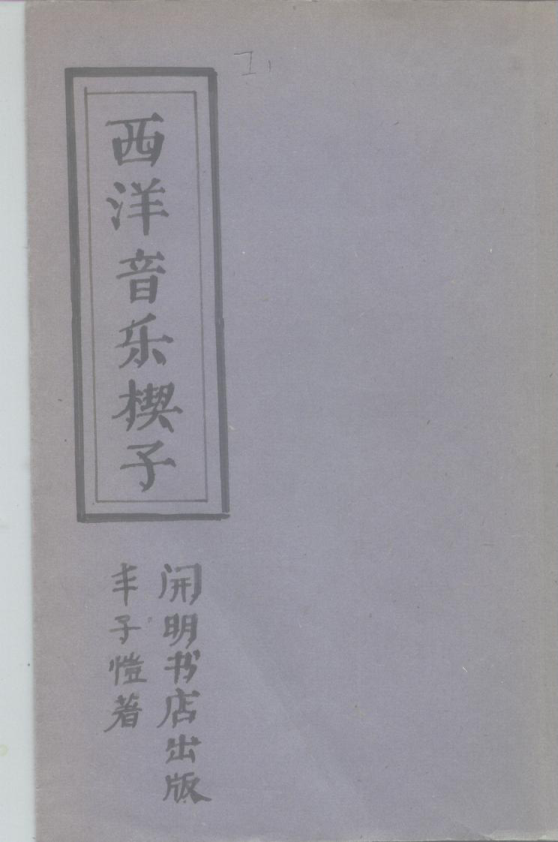 西洋音乐楔子
开明书店出版
丰子愷著